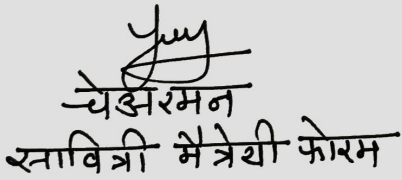 चेअरमन
सावित्री मैत्रेयी फोरम